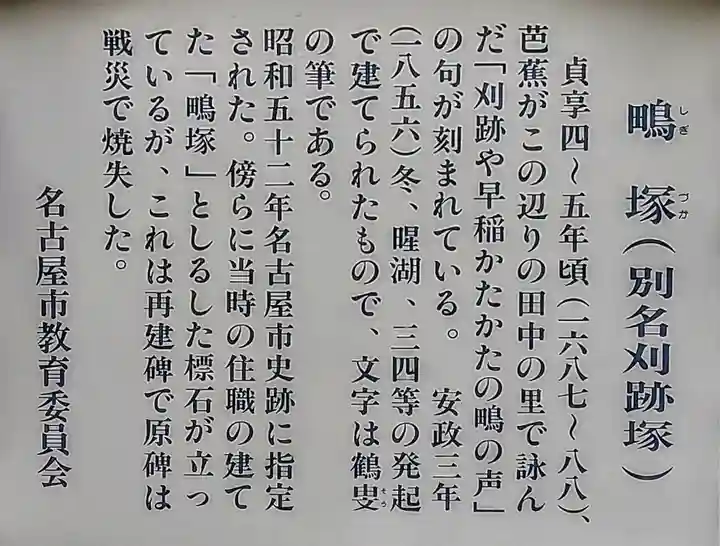 鴫塚(別名刈跡塚)
しぎ づか
貞享四~五年頃(一六八七~八八)、
芭蕉がこの辺りの田中の里で詠ん
だ「刈跡や早稲かたかたの鴫の声」
の句が刻まれている。 安政三年
(一八五六)冬、暒湖、三四等の発起
で建てられたもので、文字は鶴叟
そう
の筆である。
昭和五十二年名古屋市史跡に指定
された。傍らに当時の住職の建て
た「鴫塚」としるした標石が立っ
ているが、これは再建碑で原碑は
戦災で焼失した。
名古屋市教育委員会